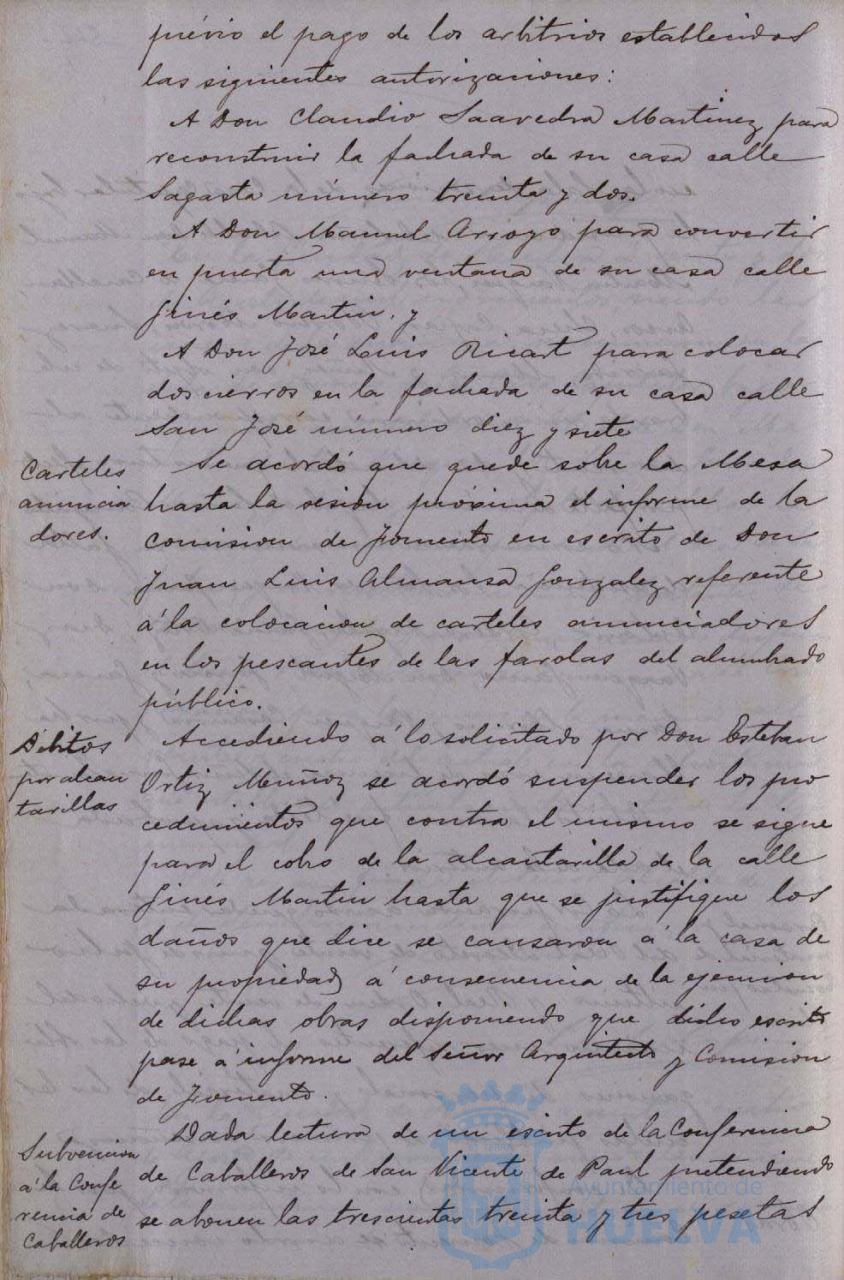 prévio el pago de los arbitrios establecidos
las siguientes autorizaciones:
A Don Claudio Saavedra Martinez para
reconstruir la fachada de su casa calle
Sagasta número treinta y dos.
A Don Manuel Arroyo para convertir
en puerta una ventana de su casa calle
Ginés Martin, y
A Don José Luis Ricart para colocar
dos cierros en la fachada de su casa calle
San José número diez y siete
Carteles
anuncia
dores.
Se acordó que quede sobre la Mesa
hasta la sesion próxima el informe de la
Comision de Fomento en escrito de Don
Juan Luis Almansa Gonzalez referente
á la colocacion de carteles anunciadores
en los pescantes de las farolas del alumbrado
público.
Débitos
por alcan
tarillas
Accediendo á lo solicitado por Don Esteban
Ortiz Muñoz se acordó suspender los pro
cedimientos que contra el mismo se sigue
para el cobro de la alcantarilla de la calle
Ginés Martin hasta que se justifique los
daños que dice se causaron á la casa de
su propiedad á consecuencia de la ejecucion
de dichas obras disponiendo que dicho escrito
pase á informe del Señor Arquitecto y Comision
de Fomento.
Subvencion
á la Confe
rencia de
Caballeros
Dada lectura de un escrito de la Conferencia
de Caballeros de San Vicente de Paul pretendiendo
se abonen las trescientas treinta y tres pesetas
Ayuntamiento de
HUELVA